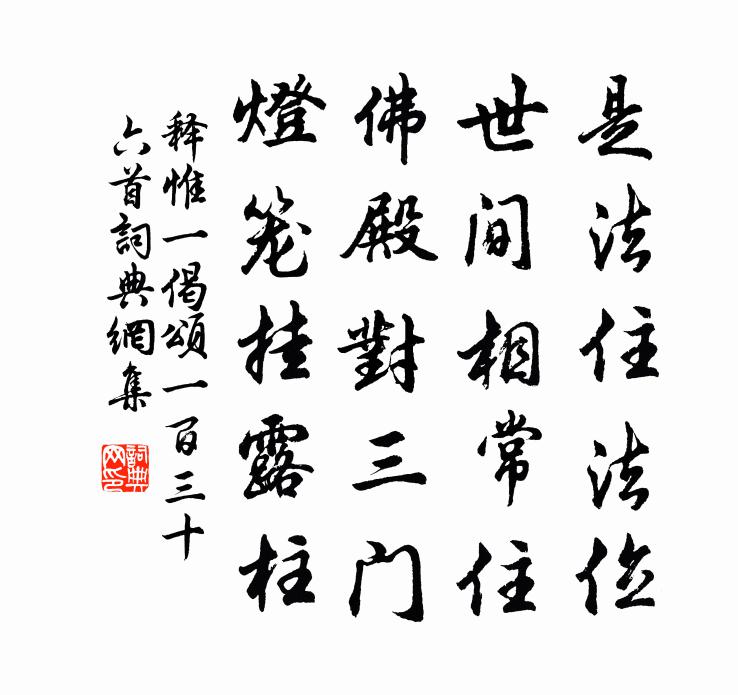 是法住法位
世间相常住
佛殿對三门
燈笼挂露柱
释惟一偈頌一百三十
六首詞典網集
詞典网印